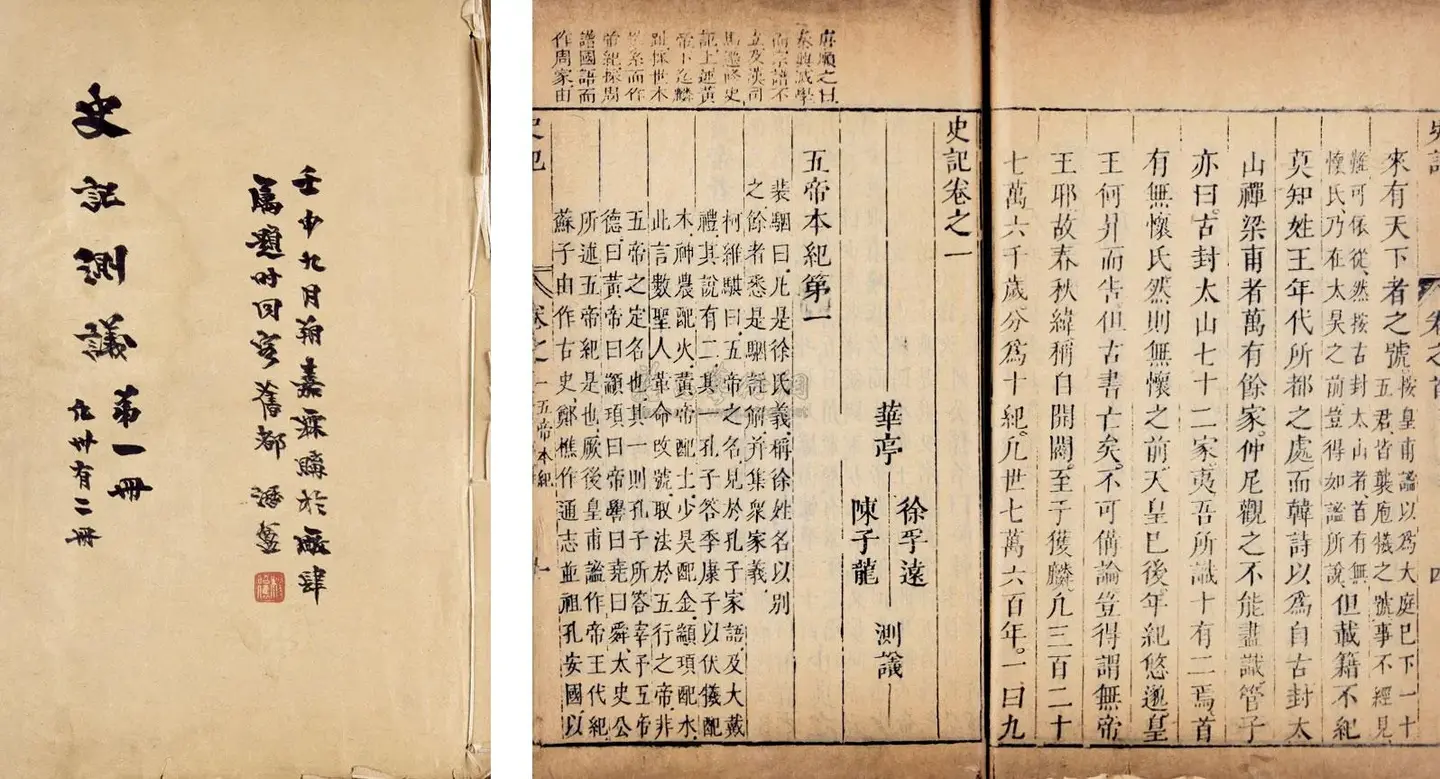 壬申九月朔嘉霖購於廠肆
屬題時同客舊都
史記測議
第一冊
卅有二冊
來有天下者之號
按皇甫謐以為大庭巳下一十
五君皆襲庖犧之號事不經見
難可依從然按古封太山者首有無
懷氏乃在太昊之前豈得如謐所說
但載籍不紀
莫知姓王年代所都之處而韓詩以為自古封太
山禪梁甫者萬有餘家仲尼觀之不能盡識管子
亦曰古封太山七十二家夷吾所識十有二焉首
有無懷氏然則無懷之前天皇巳後年紀悠邈皇
王何昇而告但古書亡矣不可備論豈得謂無帝
王耶故春秋緯稱自開闢至于獲麟凡三百二十
七萬六千歲分為十紀凡世七萬六百年一曰九
史記
卷之首
四
史記卷之一
華亭
徐孚遠
陳子龍
測議
五帝本紀第一
裴駰曰凡是徐氏義稱徐姓名以別
之餘者悉是駰註解并集衆家義
柯維騏曰五帝之名見於孔子家語及大戴
禮其說有二其一孔子答季康子以伏儀配
木神農配火黃帝配土少昊配金顓頊配水
此言數聖人革命改號取法於五行之帝非
五帝之定名也其一則孔子所答宰予五帝
德曰黃帝曰顓頊曰帝嚳曰堯曰舜太史公
所述五帝紀是也厥後皇甫謐作帝王代紀
蘇子由作古史鄭樵作通志並祖孔安國以
史記
卷之一
五帝本紀
一
麻顯之曰
秦典滅學
而宗譜不
立及漢司
馬遷修史
記上述黃
帝下迄麟
趾採世本
世系而作
帝紀採周
譜國語而
作周家由